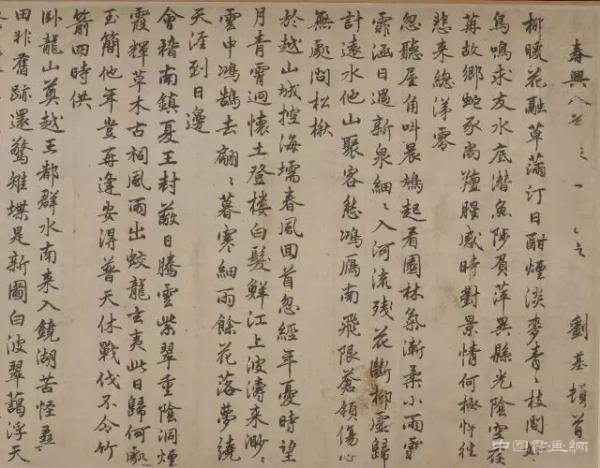 春興八首之一 劉基頓首
柳暖花融草滿汀日酣煙淡麥青〻枝間好
鳥鳴求友水底潛魚陟負萍異縣光陰空荏
苒故鄉蛇豕尚羶腥感時對景情何極忤往
悲來總涕零
忽聽屋角叫晨鳩起看園林氣漸柔小雨霏
霏涵日過新泉細〻入河流殘花斷柳虛歸
計遠水他山聚客愁鴻雁南飛限蒼嶺傷心
無處問松楸
於越山城控海壖春風回首忽經年憂時望
月青霄迥懷土登樓白髮鮮江上波濤來渺〻
雲中鴻鵠去翩〻暮寒細雨餘花落夢繞
天涯到日邊
會稽南鎮夏王封蔽日騰雲紫翠重陰洞煙
霞輝草木古祠風雨出蛟龍玄夷此日歸何處
玉簡他年豈再逢安得普天休戰伐不令竹
箭四時供
臥龍山奠越王都群水南來入鏡湖苦怪畺
田非舊跡還驚雉堞是新圖白波翠藹浮天
中國書畫網